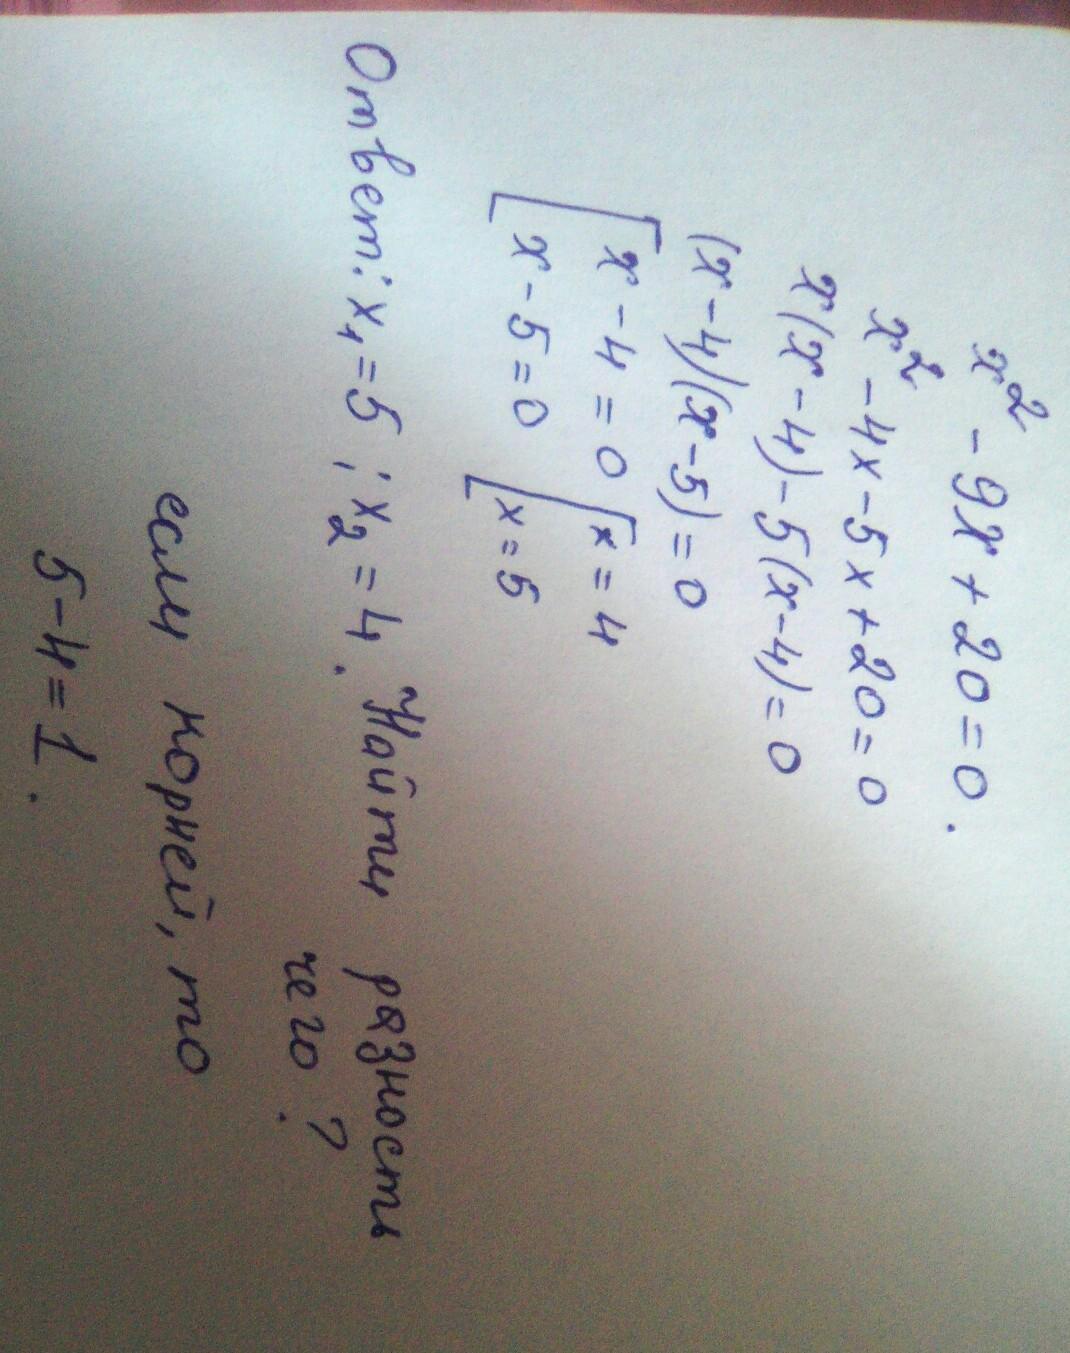 x² - 9x + 20 = 0.
x² - 4x - 5x + 20 = 0
x(x - 4) - 5(x - 4) = 0
(x - 4)(x - 5) = 0
[ x - 4 = 0 [ x = 4
x - 5 = 0 x = 5
Ответ: x₁ = 5 ; x₂ = 4. Найти разность
чего ?
если корней, то
5 - 4 = 1.